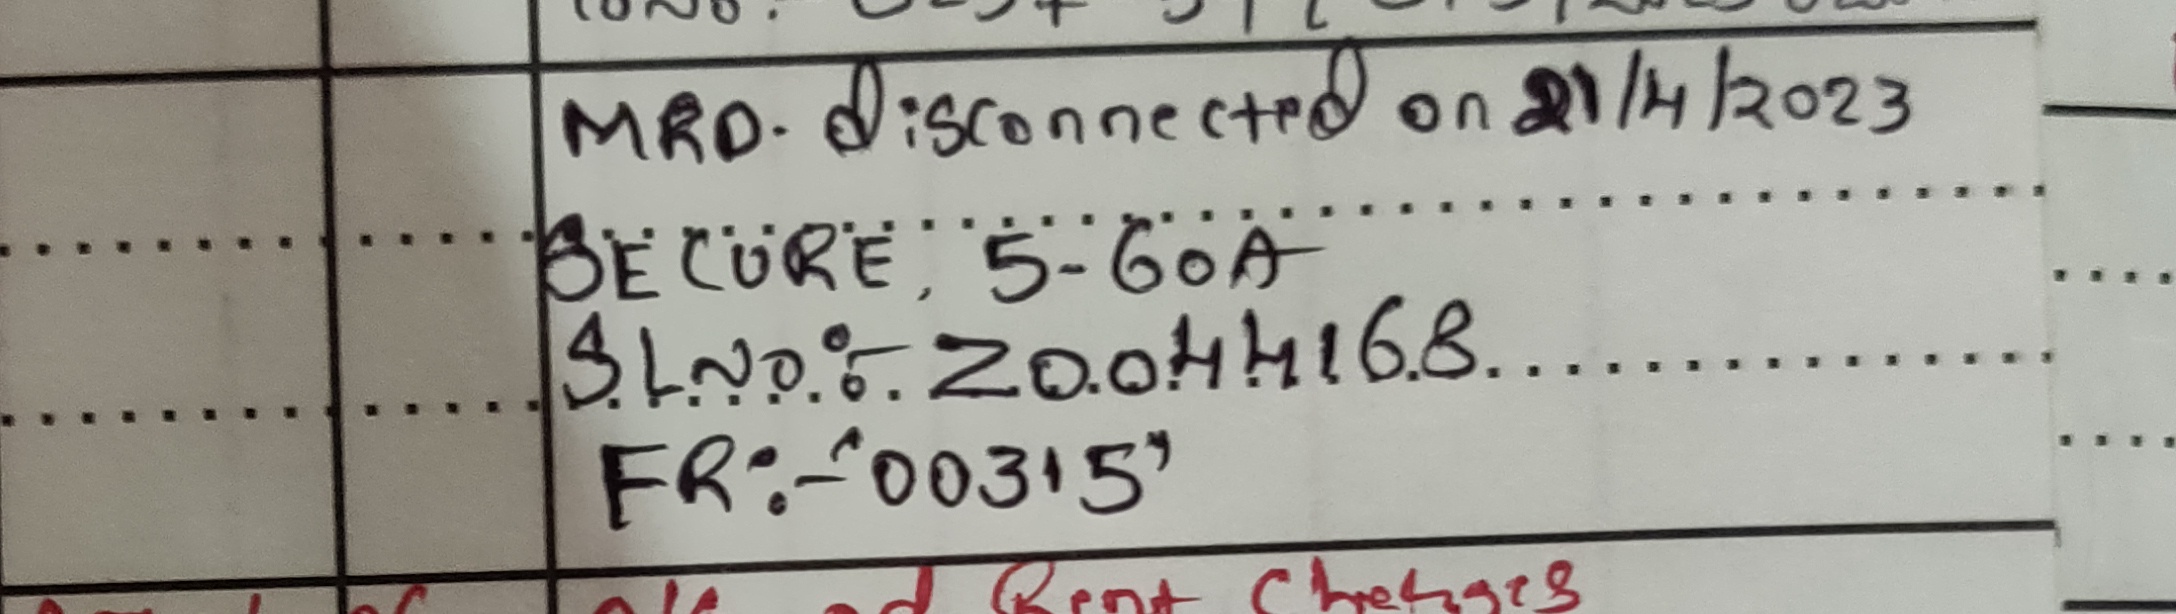 MRD. disconnected on 21/4/2023
SECURE, 5-60A
S.L.No:- Z0044168
FR:- "00315"
Rent Charges